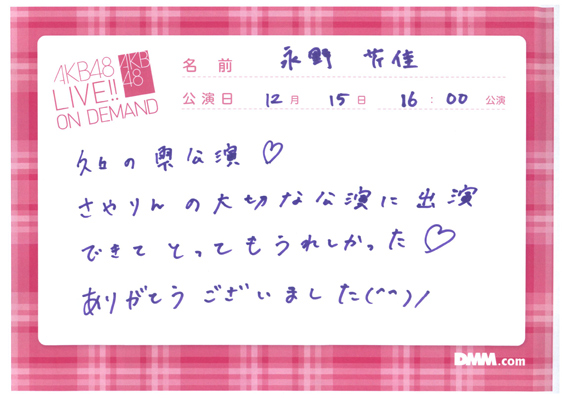 AKB48
LIVE!!
ON DEMAND
AKB
48
名前 永野 芹佳
公演日 12月 15日 16:00 公演
久々の 県公演♡
さやりんの大切な公演に出演
できてとってもうれしかった♡
ありがとうございました(^^)/
DMM.com